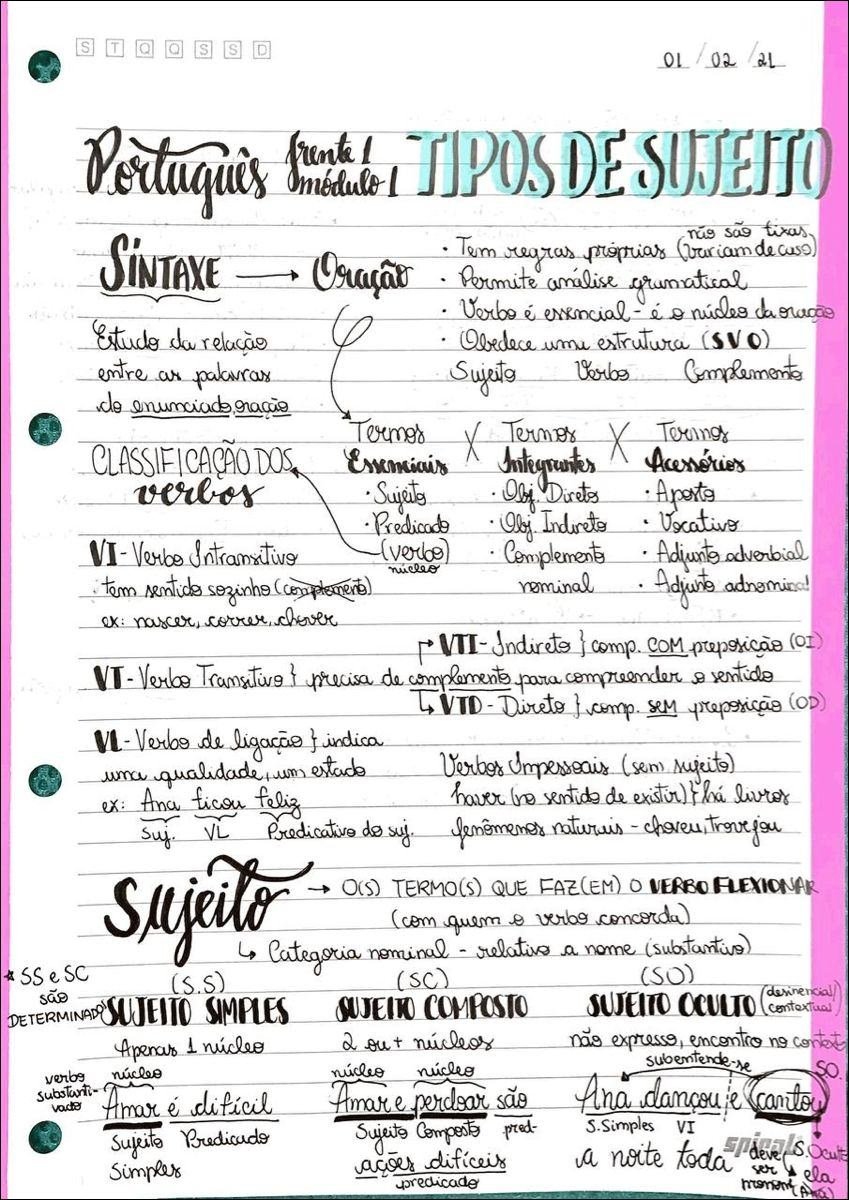 S T Q Q S S D
01 / 02 / 21
Português frente 1 módulo 1 TIPOS DE SUJEITO
SINTAXE → Oração
Estudo da relação
entre as palavras
do enunciado, oração
não são fixas
· Tem regras próprias (variam de caso)
· Permite análise gramatical
· Verbo é essencial - é o núcleo da oração
· Obedece uma estrutura (SVO)
Sujeito Verbo Complemento
Termos Essenciais X Termos Integrantes X Termos Acessórios
· Sujeito
· Predicado
(verbo)
núcleo
· Obj. Direto
· Obj. Indireto
· Complemento
nominal
· Aposto
· Vocativo
· Adjunto adverbial
· Adjunto adnominal
CLASSIFICAÇÃO DOS
verbos
VI - Verbo Intransitivo
tem sentido sozinho (complemento)
ex: nascer, correr, chover
VTI - Indireto } comp. COM preposição (OI)
VT - Verbo Transitivo } precisa de complemento para compreender o sentido
VTD - Direto } comp. SEM preposição (OD)
VL - Verbo de ligação } indica
uma qualidade, um estado
ex: Ana ficou feliz
Suj. VL Predicativo do suj.
Verbos Impessoais (sem sujeito)
haver (no sentido de existir) } há livros
fenômenos naturais - choveu, trovejou
Sujeito → O(S) TERMO(S) QUE FAZ(EM) O VERBO FLEXIONAR
(com quem o verbo concorda)
↳ Categoria nominal - relativo a nome (substantivo)
* SS e SC
são
DETERMINADOS
(S.S)
SUJEITO SIMPLES
Apenas 1 núcleo
verbo
substanti-
vado
núcleo
Amar é difícil
Sujeito Predicado
Simples
(SC)
SUJEITO COMPOSTO
2 ou + núcleos
núcleo núcleo
Amar e perdoar são
Sujeito Composto pred-
ações difíceis
predicado
(SO)
SUJEITO OCULTO (desinencial/
contextual)
não expresso, encontro no contexto
subentende-se
SO.
Ana dançou e cantou
S.Simples VI
S. Oculto
a noite toda
spiral
deve
ser
pronome
ela
(Ana)